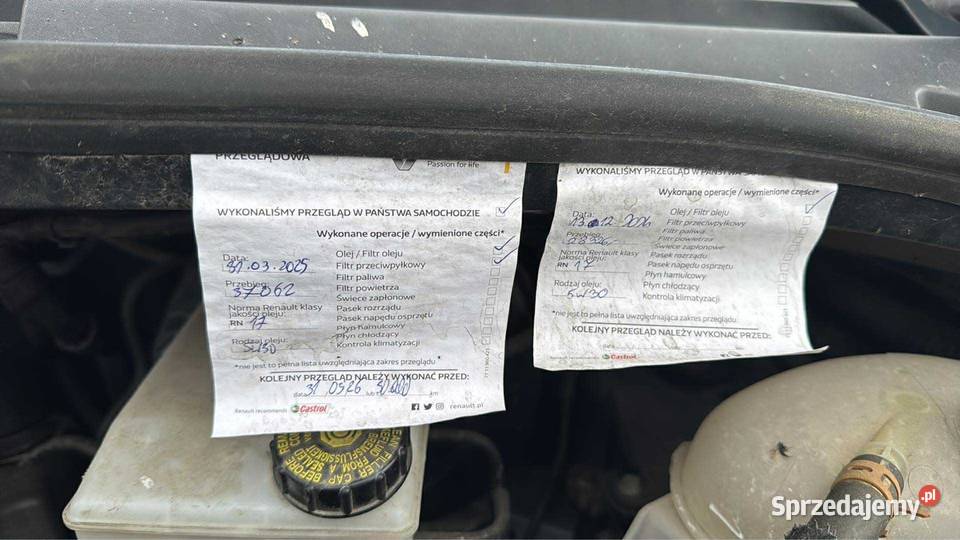 PRZEGLĄDOWA
Passion for life
WYKONALIŚMY PRZEGLĄD W PAŃSTWA SAMOCHODZIE
Wykonane operacje / wymienione części*
Data:
31.03.2025
Przebieg:
37062
Norma Renault klasy
jakości oleju:
RN 17
Rodzaj oleju:
5W30
Olej / Filtr oleju
Filtr przeciwpyłkowy
Filtr paliwa
Filtr powietrza
Świece zapłonowe
Pasek rozrządu
Pasek napędu osprzętu
Płyn hamulcowy
Płyn chłodzący
Kontrola klimatyzacji
*nie jest to pełna lista uwzględniająca zakres przeglądu
KOLEJNY PRZEGLĄD NALEŻY WYKONAĆ PRZED:
data 31.03.26 lub 50.000 km
Renault recommends Castrol
renault.pl
WYKONALIŚMY PRZEGLĄD W PAŃSTWA
Wykonane operacje / wymienione części*
Data:
Przebieg:
Norma Renault klasy
jakości oleju:
RN 17
Rodzaj oleju:
5W30
Olej / Filtr oleju
Filtr przeciwpyłkowy
Filtr paliwa
Filtr powietrza
Świece zapłonowe
Pasek rozrządu
Pasek napędu osprzętu
Płyn hamulcowy
Płyn chłodzący
Kontrola klimatyzacji
*nie jest to pełna lista uwzględniająca zakres przeglądu
KOLEJNY PRZEGLĄD NALEŻY WYKONAĆ PRZED:
data
Renault recommends Castrol
CLEAN FILLER CAP BEFORE
FROM A SEALED
BREMSFLÜSSIGKEIT
Sprzedajemy.pl